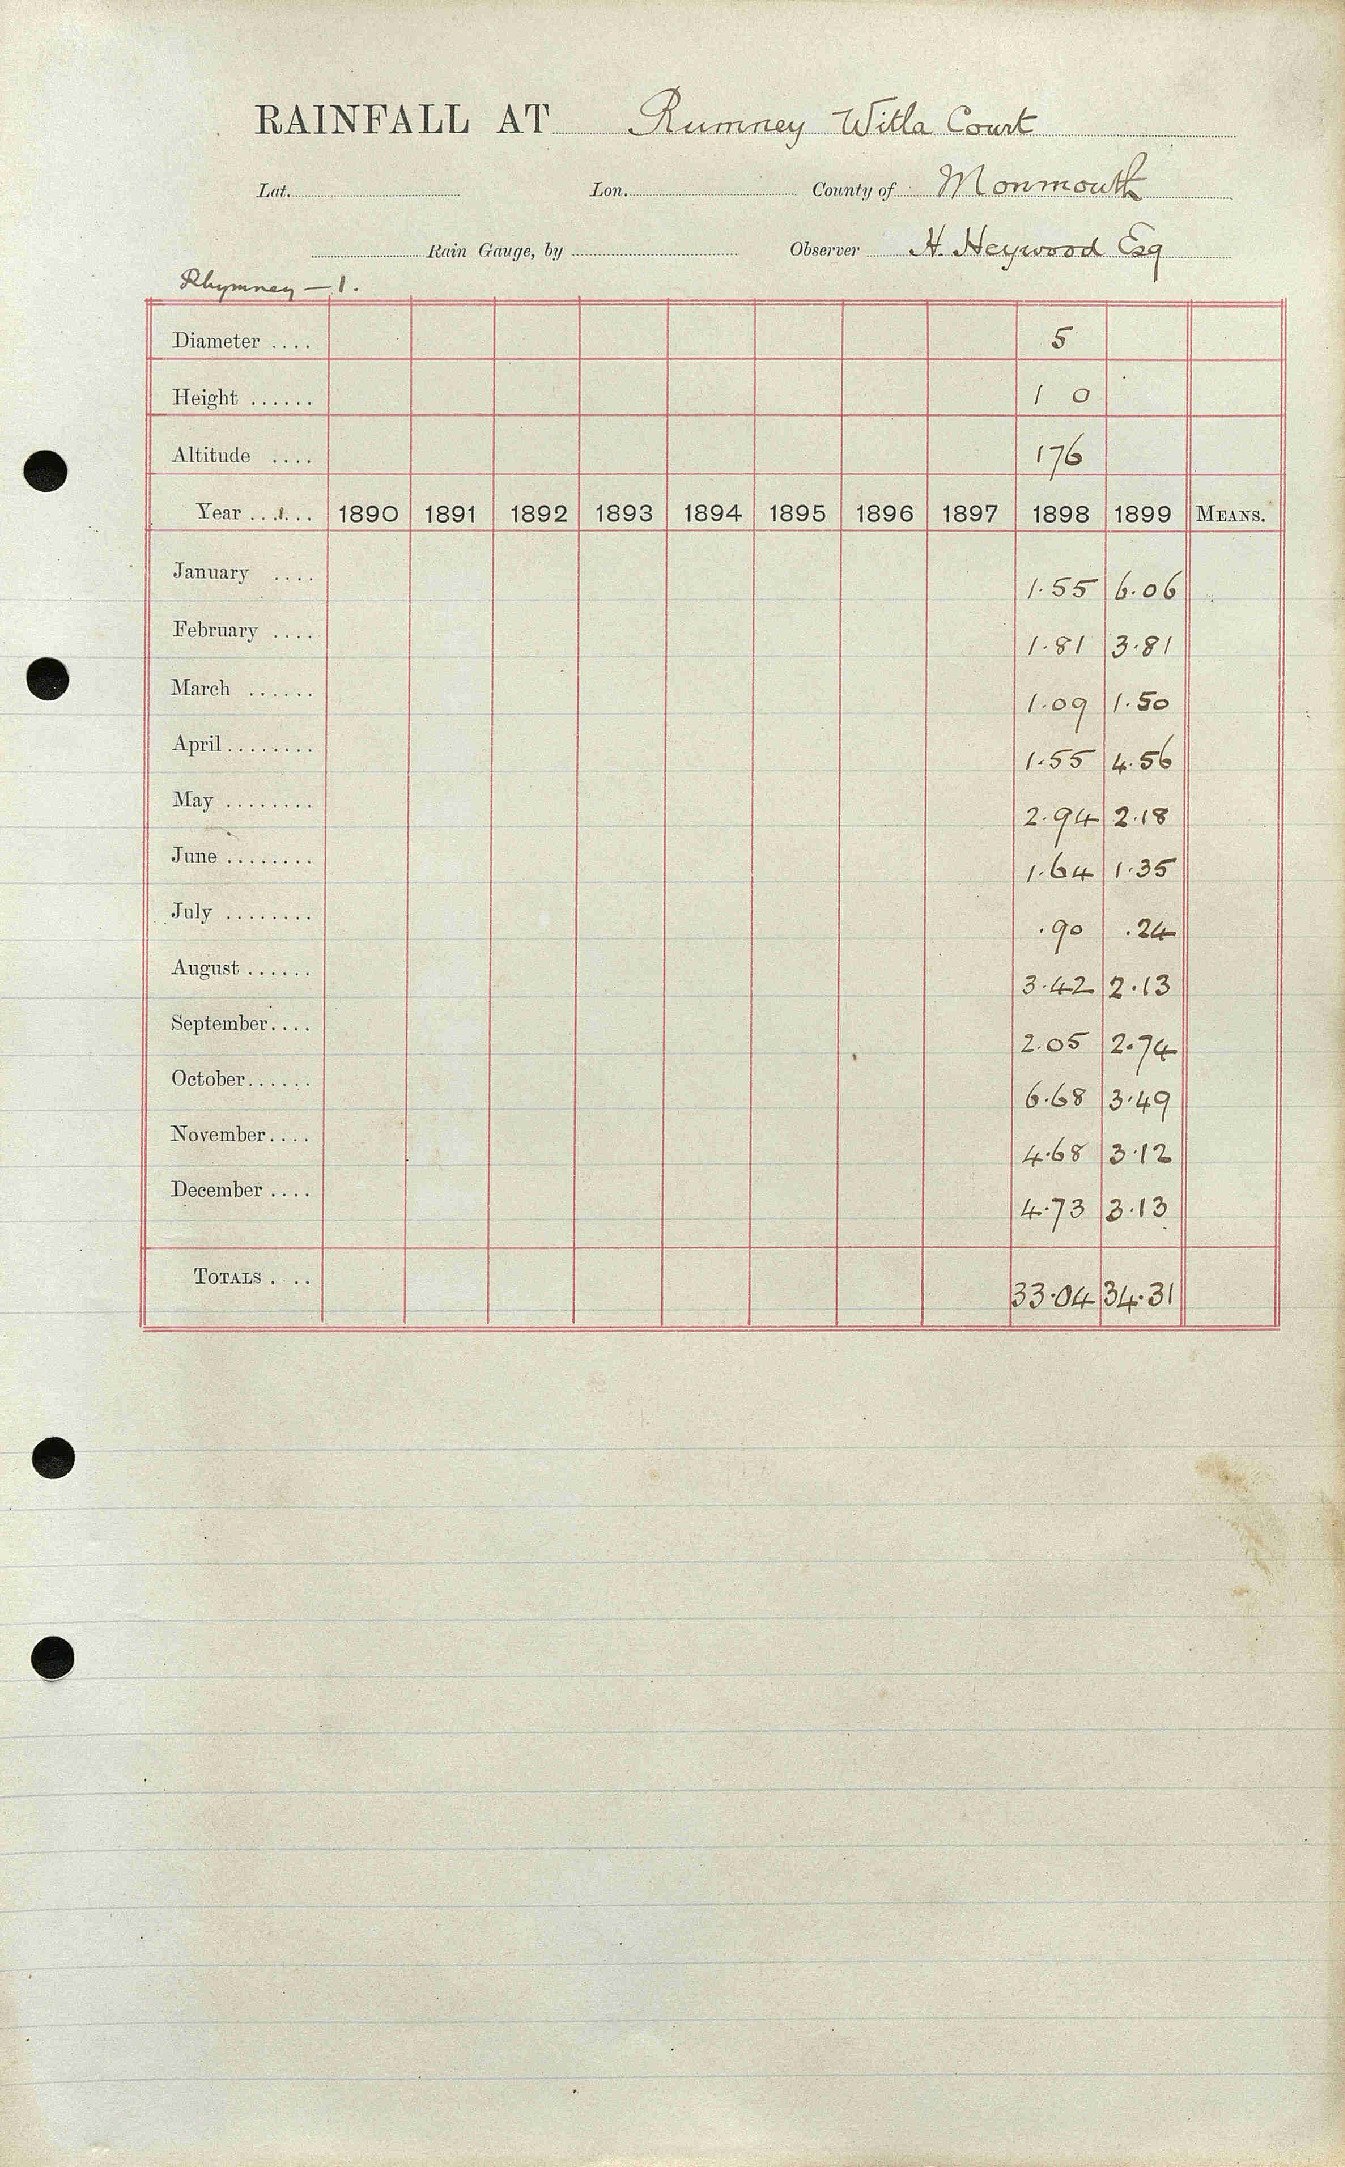 RAINFALL AT Rumney Witla Court
Lat. Lon. County of Monmouth
Rain Gauge, by Observer H. Heywood Esq
Rhymney — 1.
Diameter .... 5
Height ...... 1 0
Altitude .... 176
Year ...... 1890 1891 1892 1893 1894 1895 1896 1897 1898 1899 MEANS.
January .... 1.55 6.06
February .... 1.81 3.81
March ...... 1.09 1.50
April ........ 1.55 4.56
May ........ 2.94 2.18
June ........ 1.64 1.35
July ........ .90 .24
August ...... 3.42 2.13
September .... 2.05 2.74
October ...... 6.68 3.49
November .... 4.68 3.12
December .... 4.73 3.13
TOTALS .... 33.04 34.31